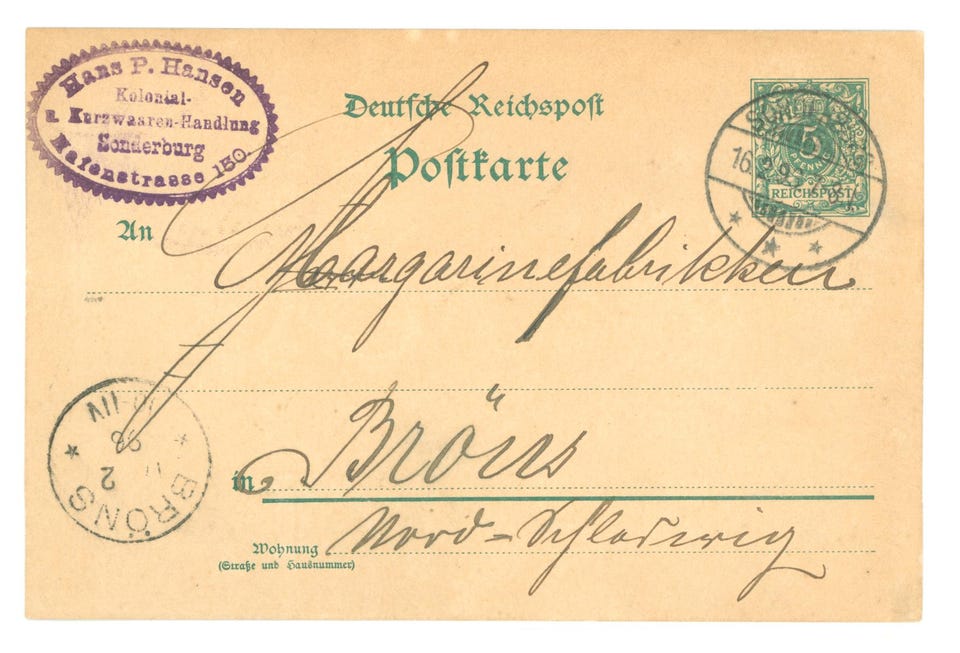 Hans P. Hansen
Kolonial-
u. Kurzwaaren-Handlung
Sonderburg
Hafenstrasse 150
Deutsche Reichspost
Postkarte
5
PFENNIG
REICHSPOST
16
An Margarinefabrikken
VII
2
BRÖNS
in Bröns
Wohnung Nord-Schleswig
(Straße und Hausnummer)